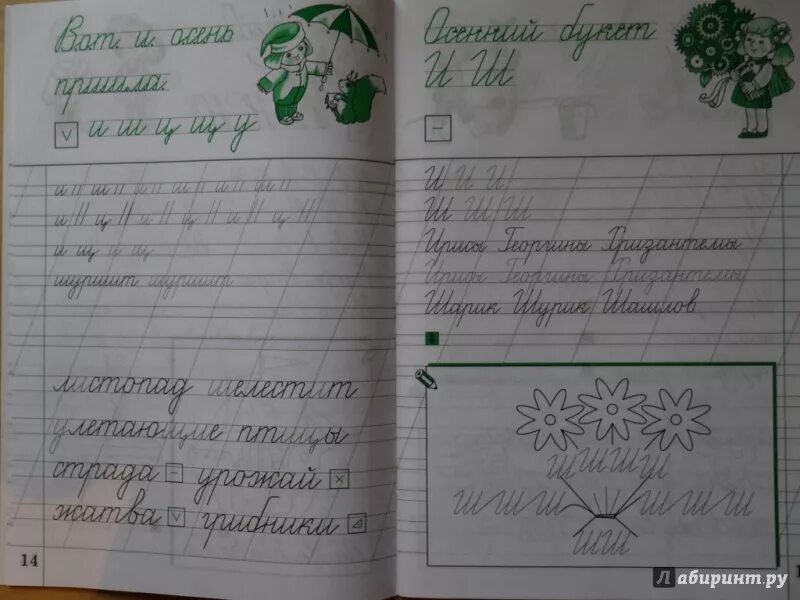 Вот и осень
пришла.
и ш ц щ у
и ш и ш и ш и ш
и ц и ц и ц и ц
и щ и щ
шуршит шуршит
листопад шелестит
улетающие птицы
страда урожай
жатва грибники
14
Осенний букет
И Ш
И И И
Ш Ш Ш
Ирисы Георгины Хризантемы
Ирисы Георгины Хризантемы
Шарик Шурик Шашлов
Ш Ш Ш Ш
Ш Ш Ш Ш Ш Ш
Ш Ш
Лабиринт.ру